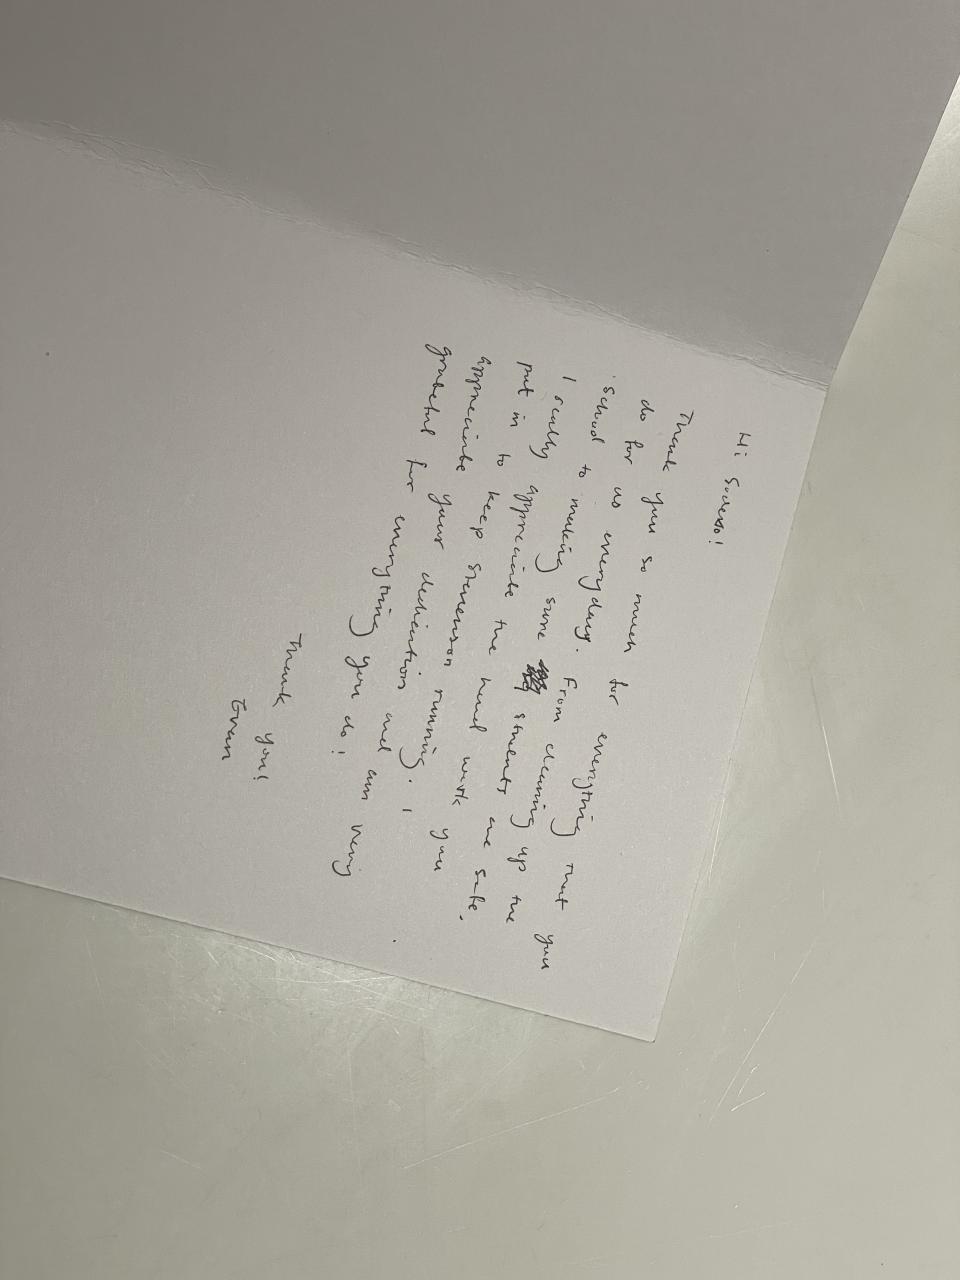 Hi Sodexo!
Thank you so much for everything that you
do for us everyday. From cleaning up the
school to making sure students are safe.
I really appreciate the hard work you
put in to keep Stevenson running. I
appreciate your dedication and am very
grateful for everything you do!
Thank you!
Evan